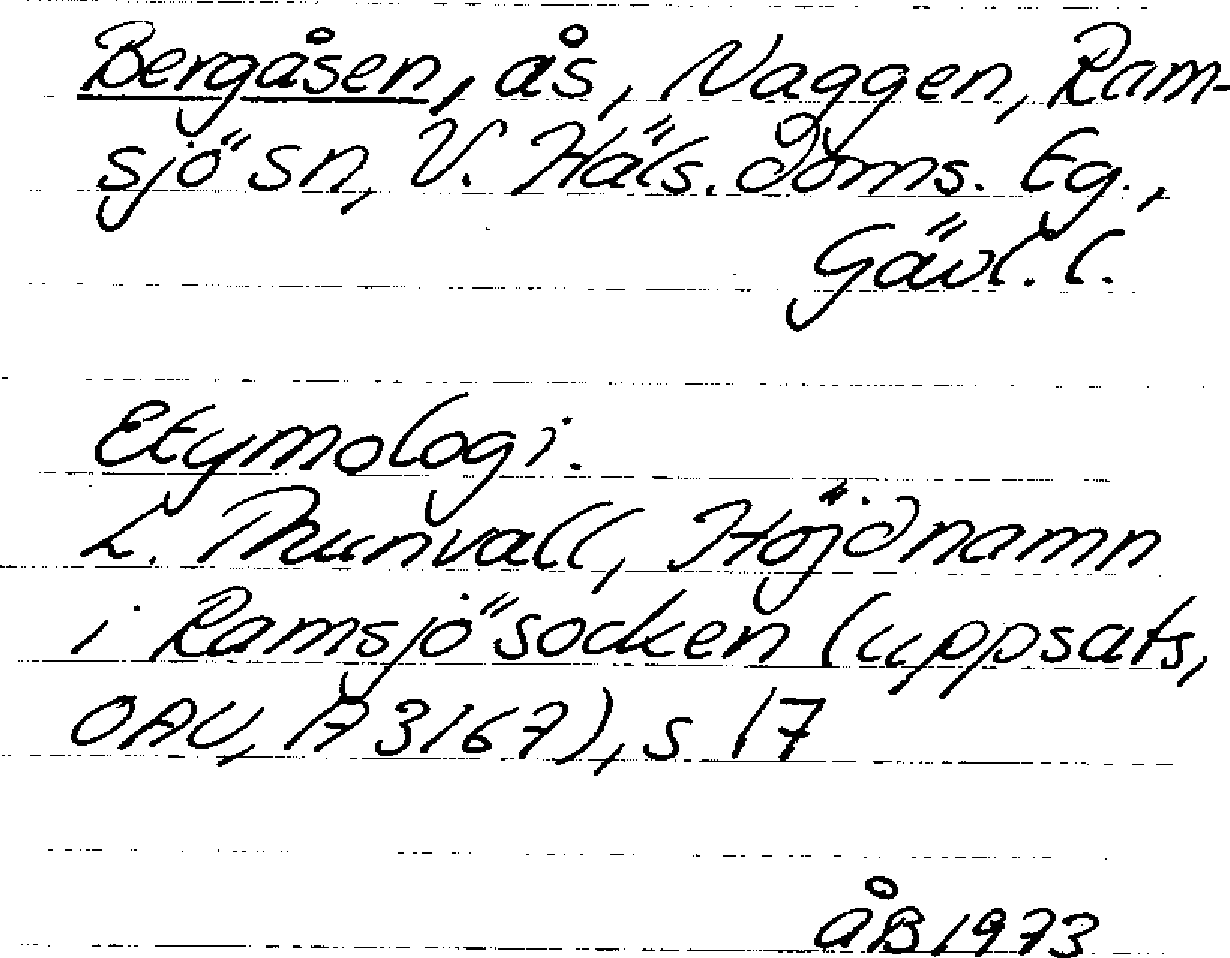 Bergåsen, ås, Naggen, Ram-
sjö sn, V. Häls. doms. tg.,
Gävl. l.
Etymologi.
L. Thunvall, Höjdnamn
i Ramsjö socken (uppsats,
OAU, 173167), s 17
ÅB 1973